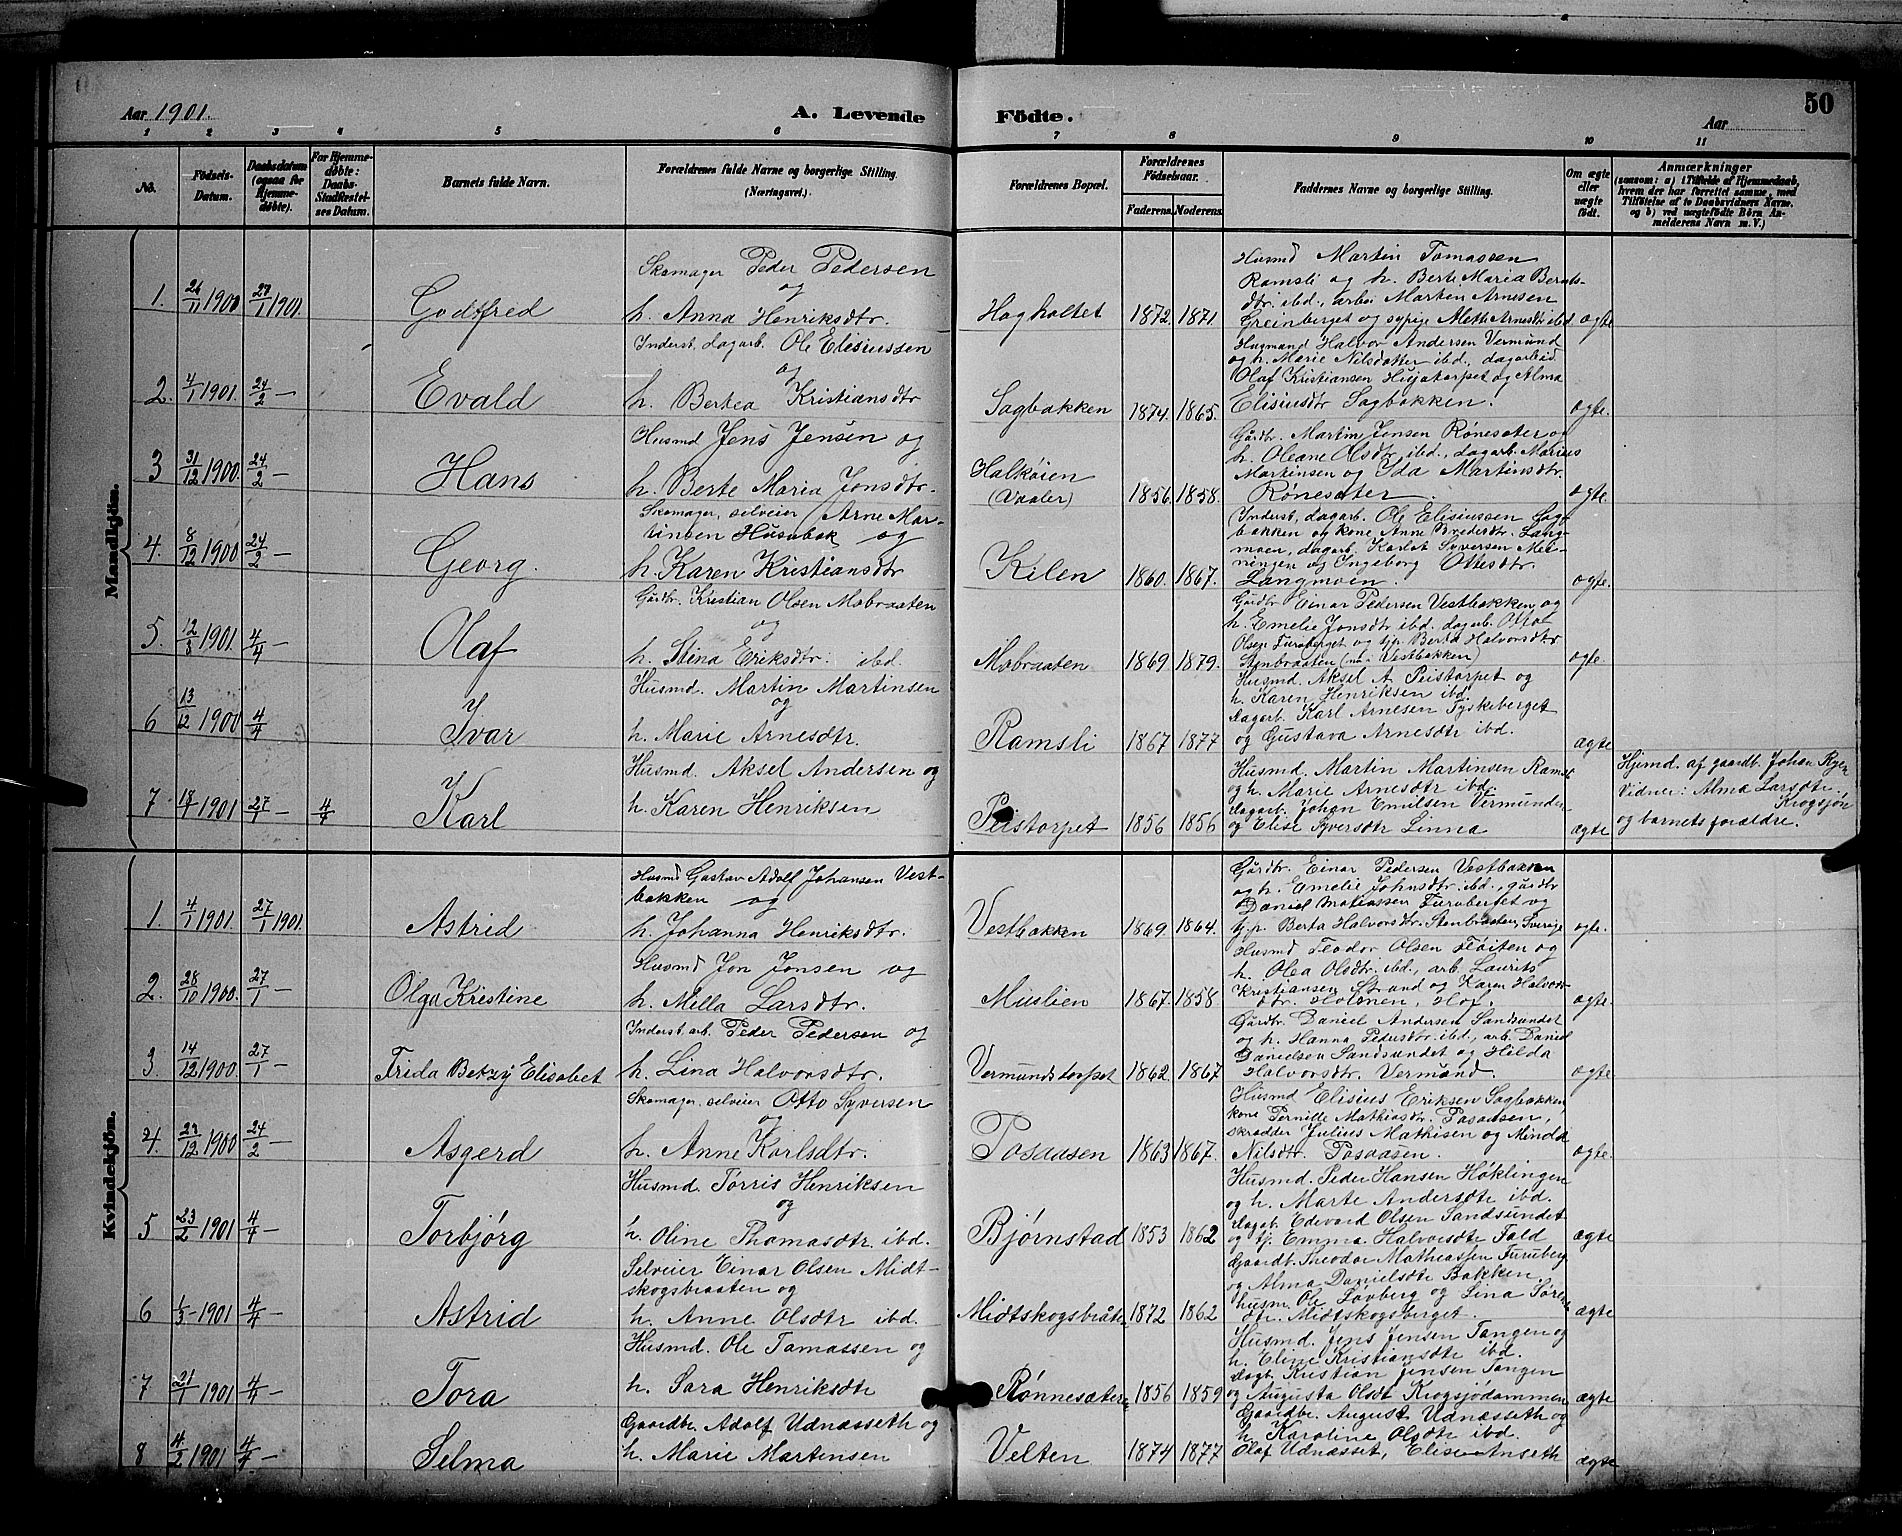 Aar 1901.
A. Levende Födte.
Aar
50
1 2 3 4 5 6 7 8 9 10 11
No.
Födsels-Datum.
Daabsdatum (ogsaa for Hjemme-døbte).
For Hjemme-døbte: Daabs-Stadfæstel-ses Datum.
Barnets fulde Navn.
Forældrenes fulde Navne og borgerlige Stilling. (Næringsvei.)
Forældrenes Bopæl.
Forældrenes Födselsaar.
Faderens. Moderens.
Faddernes Navne og borgerlige Stilling.
Om ægte eller uægte født.
Anmærkninger
(saasom: a) i Tilfælde af Hjemmedaab,
hvem der har forrettet samme, med
Tilføielse af to Daabsvidners Navne,
og b) ved uægtefødte Börn An-
melderens Navn m. V.)
Mandkjön.
1. 26/11 1900 27/1 1901. Godtfred
Skomager Peder Pedersen
og
h. Anna Henriksdtr.
Hagholtet 1872. 1871.
Husmd Martin Tomassen
Ramsli og h. Berte Maria Bernts-
dtr. ibd., arbei Marten Arnesen
Greinberget og sypige Mette Arnesdtr ibd
ægte
2. 4/1 1901. 24/2 — Evald
Inderst. dagarb. Ole Elisiussen
og
h. Bertea Kristiansdtr
Sagbakken 1874. 1865.
Husmand Halvor Andersen Vermund
og h. Marie Nilsdatter ibd. dagarbeid
Olaf Kristiansen Hujatorpet og Alma
Elisiusdtr Sagbakken.
ægte.
3 31/12 1900. 24/2 — Hans
Husmd Jens Jensen og
h. Berte Maria Jonsdtr.
Halkøien
(Vaaler) 1856. 1858.
Gårdbr. Martin Jensen Rønesater og
h. Oleane Olsdtr ibd., dagarb. Marius
Martinsen og Ida Martinsdtr.
Rønesater.
ægte.
4. 8/12 1900 24/2 — Georg.
Skomager, selveier Arne Mar-
tinsen Husubak og
h. Karen Kristiansdtr
Kilen 1860. 1867.
Inderst, dagarb. Ole Elisiussen Sag-
bakken og kone Anne Brededtr. Lang-
moen, dagarb. Karlot Syversen Mel-
ningen og Ingeborg Ottesdtr.
Langmoin.
ægte.
5. 12/3 1901. 4/4 — Olaf
Gårdbr. Kristian Olsen Mobraaten
og
h. Stina Eriksdtr. ibd.
Mobraaten 1869 1879.
Gårdbr Einar Pedersen Vestbakken og
h. Emelie Jonsdtr ibd. dagarb. Otto
Olsen Furuberget og tjp. Berta Halvorsdtr
Stenbraaten (nu Vestbakken)
ægte.
6 13/12 1900 4/4 Ivar
Husmd. Martin Martinsen
og
h. Marie Arnesdtr.
Ramsli 1867 1877
Husmd. Aksel A Peistorpet og
h. Karen Henriksen ibd.
dagarb. Karl Arnesen Tyskeberget
og Gustava Arnesdtr ibd.
ægte
7 18/1 1901 27/1 — 4/4 Karl
Husmd. Aksel Andersen og
h. Karen Henriksen
Peistorpet 1856 1856
Husmd. Martin Martinsen Ramsl
og h. Marie Arnesdtr ibd.
dagarb. Johan Emilsen Vermunden
og Elise Syversdtr Linna
ægte
Hjemd. af gaardb. Johan Ryen
Vidner: Alma Larsdtr.
Krogsjøn
og barnets forældre.
Kvindekjön.
1. 4/1 1901. 27/1 1901. Astrid
Husmd Gustav Adolf Johansen Vest-
bakken og
h. Johanna Henriksdtr.
Vestbakken 1869 1864.
Gårdbr. Einar Pedersen Vestbakken
og h. Emelie Johnsdtr ibd., gårdbr
Daniel Matiassen Furuberget og
tj.p. Berta Halvorsdtr. Stenbraaten, Sverige
ægte.
2. 28/10 1900. 27/1 — Olga Kristine
Husmd Jon Jonsen og
h. Mella Larsdtr.
Muslien 1867. 1858.
Husmd Teodor Olsen Fløiten og
h. Olea Olsdtr. ibd., arb. Laurits
Kristiansen Strand og Karen Halvors-
dtr. Holmen, Hof.
ægte
3. 14/12 1900. 27/1 — Frida Betzy Elisabet
Inderst. arb. Peder Pedersen og
h. Lina Halvorsdtr.
Vermundstorpet 1862. 1867
Gårdbr. Daniel Andersen Sandsundet
og h. Hanna Pedersdtr. ibd., arb. Daniel
Danielsen Sandsundet og Hilda
Halvorsdtr. Vermund.
ægte
4. 23/12 1900 24/2 — Asgerd
Skomager. selveier Otto Syversen
og
h. Anne Karlsdtr.
Posaasen 1863 1867.
Husmd Elisius Eriksen Sagbakken
kone Pernille Mathiasdtr. Posaasen,
skrædder Julius Mathisen og Minda
Nilsdtr. Posaasen.
ægte.
5 23/2 1901 4/4 — Torbjórg
Husmd. Torris Henriksen
og
h. Oline Thomasdtr. ibd.
Bjørnstad 1853 1862
Husmd. Peder Hansen Høklingen
og h. Marte Andersdtr ibd.
dagab. Edevard Olsen Sandsundet
og tj. Emma Halvorsdtr Fald
ægte
6 1/3 1901 4/4 — Astrid
Selveier Einar Olsen Midt-
skogsbraaten og
h. Anne Olsdtr ibd.
Midtskogsbråten 1872 1862
Gaardb. Theodor Mathiassen Furuberg
og Alma Danielsdtr Bakken,
husm. Ole Løvberg og Lina Sören
dtr. Midtskogsberget.
ægte
7 21/1 1901 4/4 — Tora
Husmd. Ole Tomassen og
h. Sara Henriksdtr
Rönnesæter 1856 1859
Husmd. Jens Jensen Tangen og
h. Eline Kristiansdtr ibd.
dagb. Kristian Jensen Tangen
og Augusta Olsdt Krogsjödammen
ægte
8 4/2 1901 4/4 — Selma
Gaardbr. Adolf Udnæsseth og
h. Marie Martinsen
Velten 1874 1877
Gaardbr. August Udnæsseth og
h. Karoline Olsdtr ibd.
Olaf Udnæsset, Elise Anseth
ægte